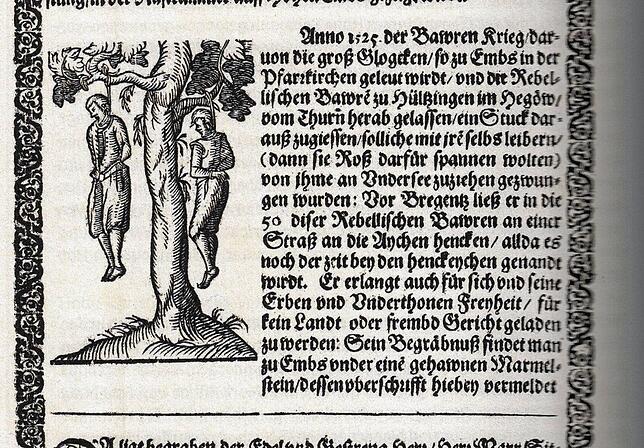 Anno 1525. der Bawren Krieg/dar-
uon die groß Glogcken/so zu Embs in der
Pfarrkirchen geleut wirdt/vnd die Rebel-
lischen Bawrē zu Hültzingen im Hegöw/
vom Thurn herab gelassen/ein Stuck dar-
auß zugiessen/solliche mit jrē selbs leibern/
(dann sie Roß darfür spannen wolten)
von jhme an Vndersee zuziehen gezwun-
gen wurden: Vor Bregentz ließ er in die
50 diser Rebellischen Bawren an einer
Straß an die Aychen hencken/allda es
noch der zeit bey den henckeychen genandt
wirdt. Er erlangt auch für sich vnd seine
Erben vnd Vnderthonen Freyheit/ für
kein Landt oder frembd Gericht geladen
zu werden: Sein Begräbnuß findet man
zu Embs vnder einē gehawnen Marmel-
stein/dessen vberschrifft hiebey vermeldet
begraben der Edel vnd